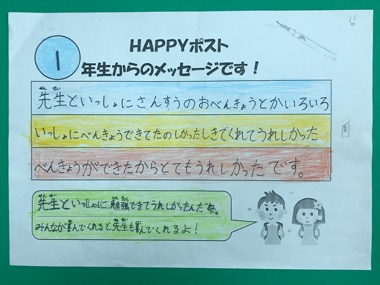 1
HAPPYポスト
年生からのメッセージです！
先生といっしょにさんすうのおべんきょうとかいろいろ
いっしょにべんきょうできてたのしかったしきてくれてうれしかった
べんきょうができたからとてもうれしかったです。
先生といっしょに勉強できてうれしかったんだね。
みんなが喜んでくれると先生も喜んでくれるよ！